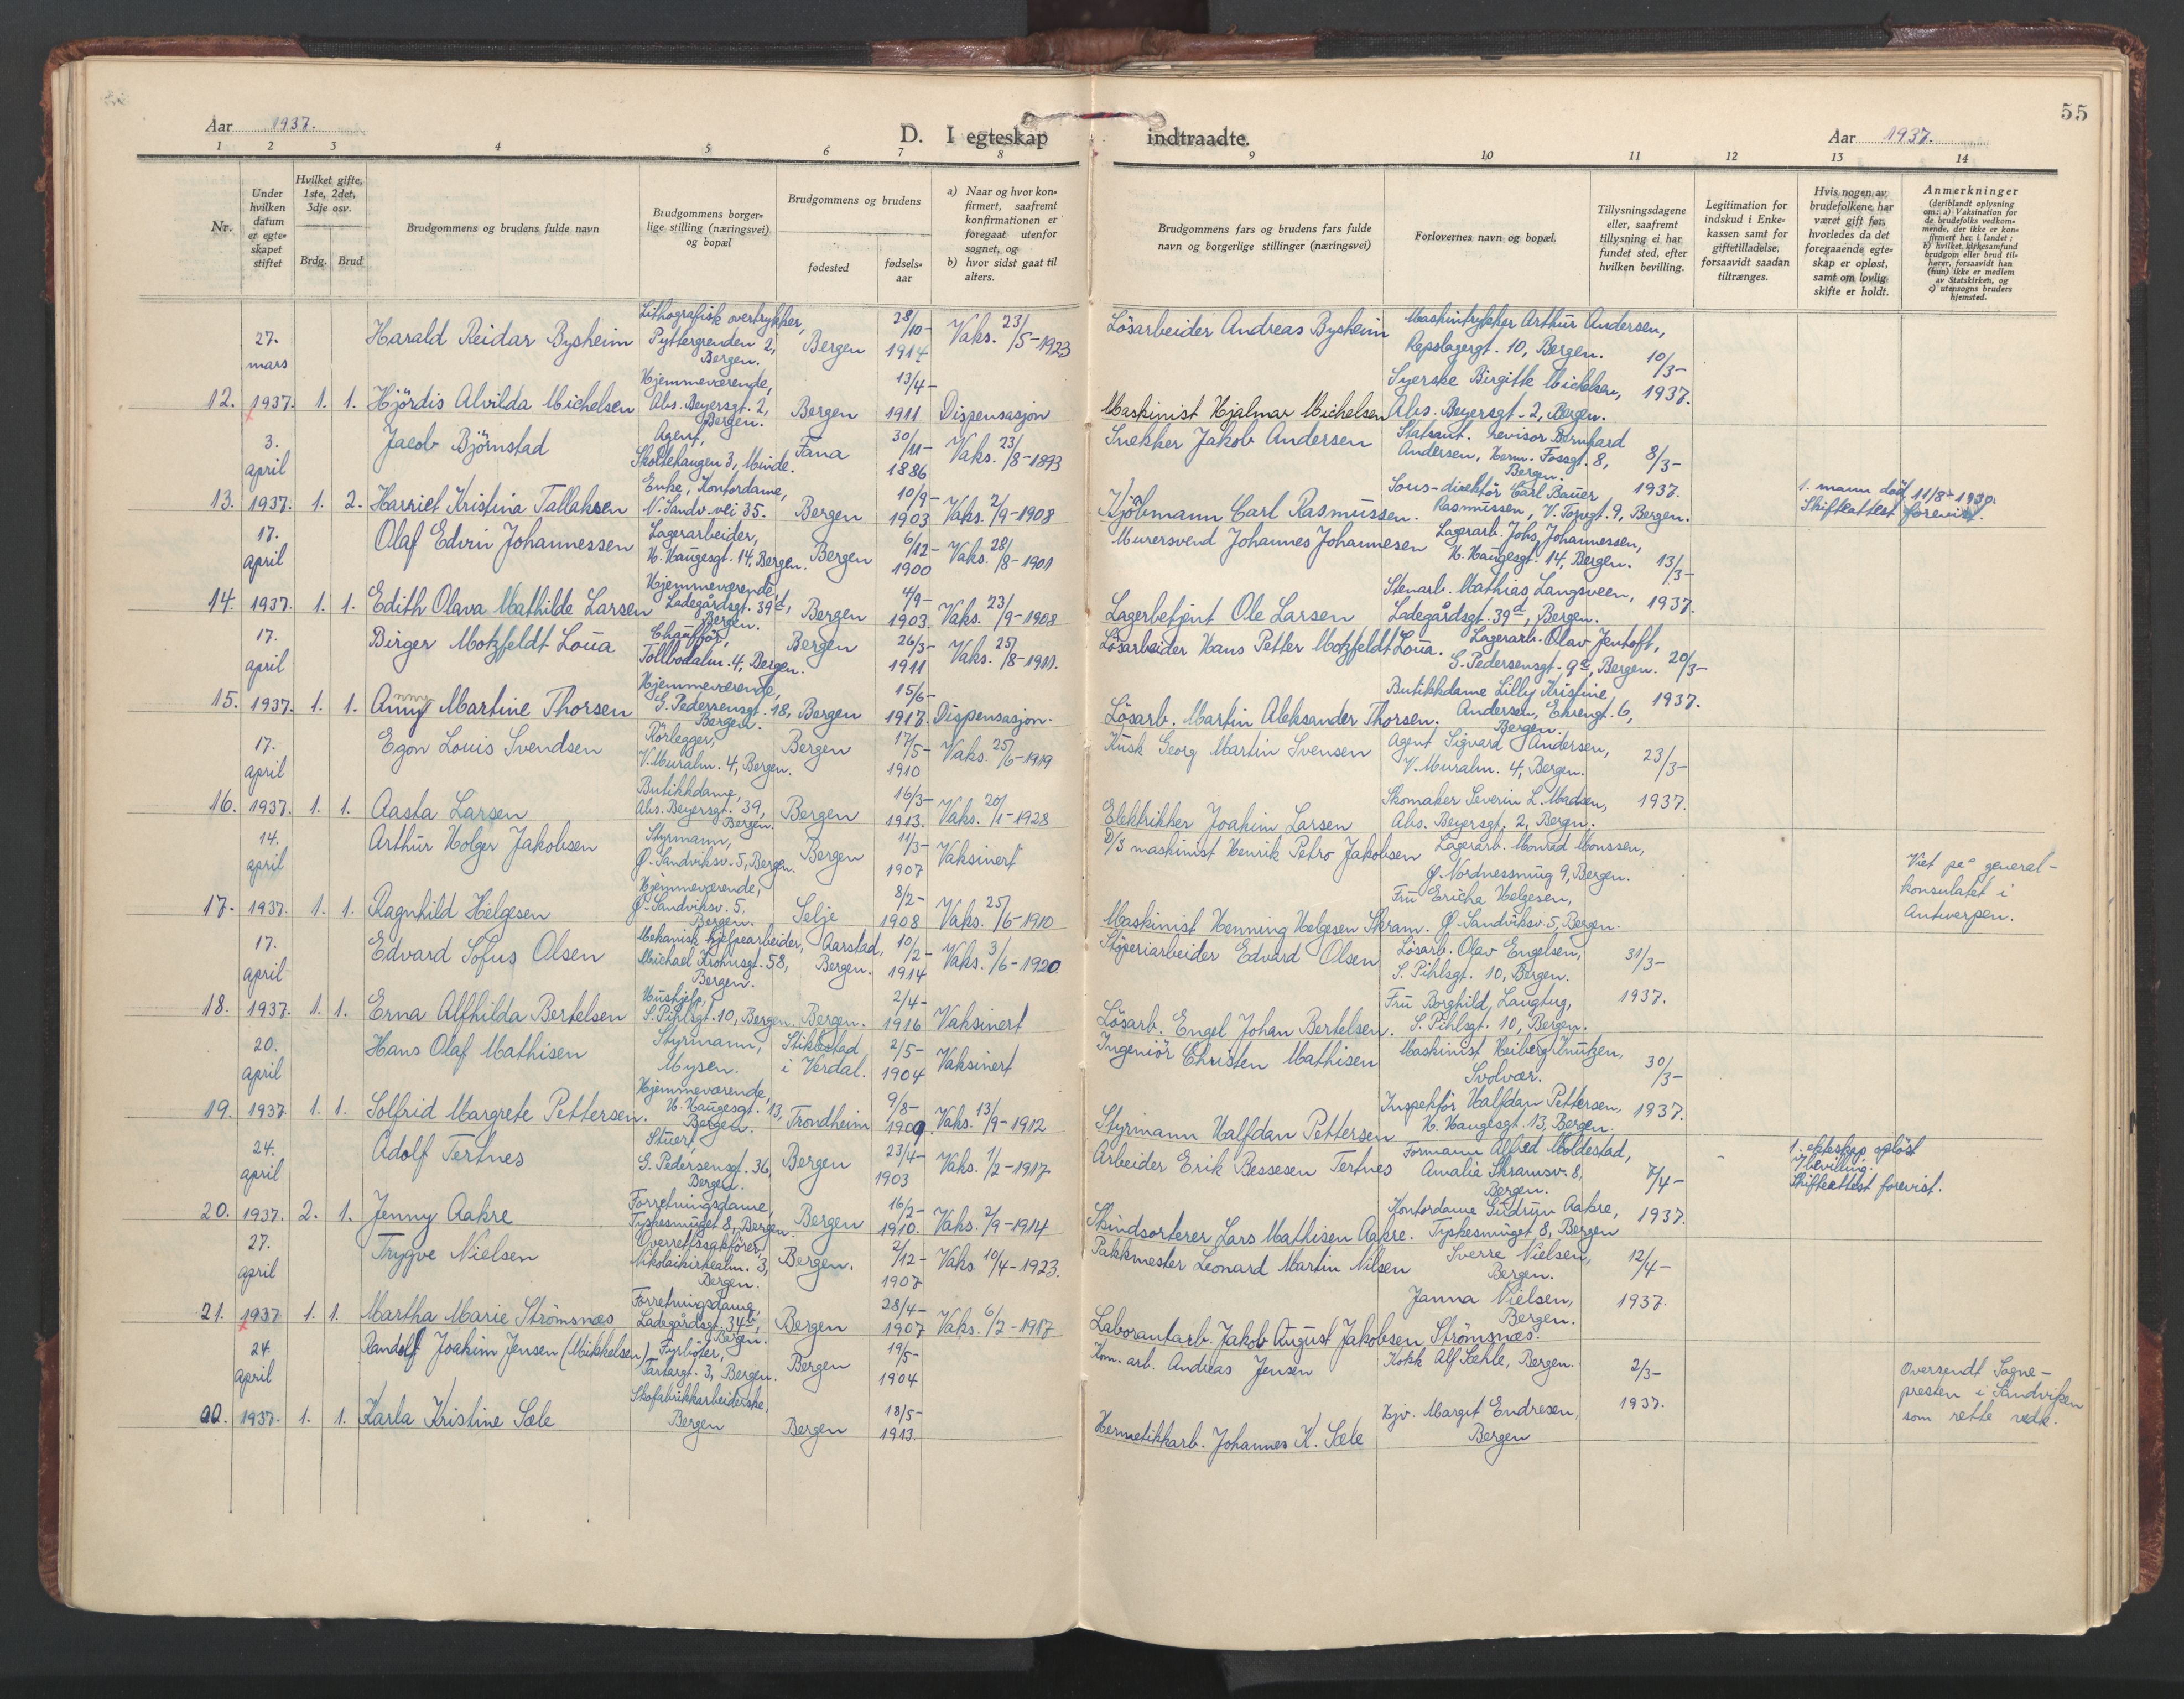 55
Aar 1937.
D. I egteskap indtraadte.
Aar 1937.
1 2 3 4 5 6 7 8 9 10 11 12 13 14
Nr.
Under hvilken datum er egte-skapet stiftet
Hvilket gifte, 1ste, 2det, 3dje osv.
Brdg. Brud
Brudgommens og brudens fulde navn
Brudgommens borger-lige stilling (næringsvei) og bopæl
Brudgommens og brudens
fødested
fødsels-aar
a) Naar og hvor kon-firmert, saafremt konfirmationen er foregaat utenfor sognet, og
b) hvor sidst gaat til alters.
Brudgommens fars og brudens fars fulde navn og borgerlige stillinger (næringsvei)
Forlovernes navn og bopæl.
Tillysningsdagene eller, saafremt tillysning ei har fundet sted, efter hvilken bevilling.
Legitimation for indskud i Enke-kassen samt for giftetilladelse, forsaavidt saadan tiltrænges.
Hvis nogen av brudefolkene har været gift før, hvorledes da det foregaaende egte-skap er opløst, samt om lovlig skifte er holdt.
Anmerkninger (deriblandt oplysning om: a) Vaksination for de brudefolks vedkom-mende, der ikke er kon-firmert her i landet; b) hvilket kirkesamfund brudgom eller brud til-hører, forsaavidt han (hun) ikke er medlem av Statskirken, og c) utensogns bruders hjemsted.
12. 27. mars 1937. 1. 1.
Harald Reidar Bysheim
Lithografisk overtrykker, Pyttergrenden 2, Bergen.
Bergen 28/10-1914 Vaks. 23/5-1923
Lösarbeider Andreas Bysheim
Maskintrykker Arthur Andersen, Repslagergt. 10, Bergen.
10/3-1937.
Hjördis Alvilda Michelsen
Hjemmeværende, Abs. Beyersgt. 2, Bergen.
Bergen 13/4-1911 Dispensasjon
Maskinist Hjalmar Michelsen
Syerske Birgitte Michelsen, Abs. Beyersgt. 2, Bergen.
13. 3. april 1937. 1. 2.
Jacob Björnstad
Agent, Skoltehaugen 3, Minde.
Fana 30/11-1886 Vaks. 23/8-1893
Snekker Jakob Andersen
Statsaut. revisor Bernhard Andersen, Herm. Fossgt. 8, Bergen.
8/3-1937.
Harriet Kristina Tallaksen
Enke, Kontordame, N. Sandv. vei 35.
Bergen 10/9-1903 Vaks. 2/9-1908
Kjöbmann Carl Rasmussen.
Sous-direktör Carl Bauer Rasmussen, V. Torvgt. 9, Bergen.
1. mann död 11/8-1930. Skifteattest forevist.
14. 17. april 1937. 1. 1.
Olaf Edvin Johannessen
Lagerarbeider, H. Haugesgt. 14, Bergen.
Bergen 6/12-1900 Vaks. 28/8-1901
Murersvend Johannes Johannesen
Lagerarb. Johs. Johannessen, H. Haugesgt. 14, Bergen.
13/3-1937.
Edith Olava Mathilde Larsen
Hjemmeværende, Ladegårdsgt. 39d, Bergen.
Bergen 4/9-1903 Vaks. 23/9-1908
Lagerbetjent Ole Larsen
Stenarb. Mathias Langsveen, Ladegårdsgt. 39d, Bergen.
15. 17. april 1937. 1. 1.
Birger Motzfeldt Loua
Chauffør, Tollbodalm. 4, Bergen.
Bergen 26/3-1911 Vaks. 25/8-1911.
Lösarbeider Hans Petter Motzfeldt Loua.
Lagerarb. Olav Jentoft, S. Pedersensgt. 9c, Bergen.
20/3-1937.
Anny Martine Thorsen
Hjemmeværende, G. Pedersensgt. 18, Bergen.
Bergen 15/6-1917. Dispensasjon.
Lösarb. Martin Aleksander Thorsen.
Butikkdame Lilly Kristine Andersen, Ehrengt. 6, Bergen.
16. 17. april 1937. 1. 1.
Egon Louis Svendsen
Rörlegger, V. Muralm. 4, Bergen.
Bergen 17/5-1910 Vaks. 25/6-1919
Kusk Georg Martin Svensen
Agent Sigvard Andersen, V. Muralm. 4, Bergen.
23/3-1937.
Aasta Larsen
Butikkdame, Abs. Beyersgt. 39, Bergen.
Bergen 16/3-1913. Vaks. 20/1-1928
Elektrikker Joakim Larsen
Skomaker Severin L. Madsen, Abs. Beyersgt. 2, Bergn.
17. 14. april 1937. 1. 1.
Arthur Holger Jakobsen
Styrmann, Ø. Sandviksv. 5, Bergen.
Bergen 11/3-1907 Vaksinert
2/3 maskinist Henrik Petro Jakobsen
Lagerarb. Monrad Monssen, Ø. Nordnessmug 9, Bergen.
Viet på general-konsulatet i Antwerpen.
Ragnhild Helgesen
Hjemmeværende, Ø. Sandviksv. 5, Bergen.
Selje 8/2-1908 Vaks. 25/6-1910
Maskinist Henning Helgesen Skram.
Fru Ericha Helgesen, Ø. Sandviksv. 5, Bergen.
18. 17. april 1937. 1. 1.
Edvard Sofus Olsen
Mekanisk hjelpearbeider, Michael Krohnsgt. 58, Bergen.
Aarstad, Bergen. 10/2-1914 Vaks. 3/6-1920
Stöperiarbeider Edvard Olsen
Lösarb. Olav Engelsen, S. Pihlsgt. 10, Bergen.
31/3-1937.
Erna Alfhilda Bertelsen
Hushjelp, S. Pihlsgt. 10, Bergen.
Bergen. 2/4-1916 Vaksinert
Lösarb. Engel Johan Bertelsen.
Fru Borghild Langtug, S. Pihlsgt. 10, Bergen.
19. 20. april 1937 1. 1.
Hans Olaf Mathisen
Styrmann, Mysen.
Stiklestad i Verdal. 2/5-1904 Vaksinert
Ingeniör Christen Mathisen
Maskinist Heiberg Knutzen, Svolvær.
30/3-1937.
Solfrid Margrete Pettersen.
Hjemmeværende, H. Haugesgt. 13, Bergen.
Trondheim 9/8-1909. Vaks. 13/9-1912
Styrmann Halfdan Pettersen
Inspektör Halfdan Pettersen, H. Haugesgt. 13, Bergen.
20. 24. april 1937. 2. 1.
Adolf Tertnes
Stuert, G. Pedersensgt. 36, Bergen.
Bergen 23/4-1903 Vaks. 1/2-1917
Arbeider Erik Bessesen Tertnes
Formann Alfred Moldestad, Amalia Skramsv. 8, Bergen.
7/4-1937.
1. ekteskap oplöst v/bevilling. Skifteattest forevist.
Jenny Aakre
Forretningsdame, Tyskesmuget 8, Bergen.
Bergen 16/2-1910. Vaks. 2/9-1914
Skindsorterer Lars Mathisen Aakre.
Kontordame Gudrun Aakre, Tyskesmuget 8, Bergen
21. 27. april 1937 1. 1.
Trygve Nielsen
Overrettssakförer, Nikolaikirkealm. 3, Bergen.
Bergen. 2/12-1907 Vaks. 10/4-1923.
Pakkmester Leonard Martin Nilsen
Sverre Nielsen, Bergen.
12/4-1937.
Martha Marie Strömsnes
Forretningsdame, Ladegårdsgt. 34b, Bergen.
Bergen 28/4-1907 Vaks. 6/2-1917
Laborantarb. Jakob August Jakobsen Strömsnes.
Janna Nielsen, Bergen.
00. 24. april 1937. 1. 1.
Randolf Joakim Jensen (Mikkelsen)
Fyrböter, Tartargt. 3, Bergen.
Bergen 19/5-1904
Kom. arb. Andreas Jensen
Kokk Alf Sæhle, Bergen.
2/3-1937.
Oversendt Sogne-presten i Sandviken som rette vedk.
Karla Kristine Sæle
Skofabrikkarbeiderske, Bergen
Bergen 18/5-1913.
Hermetikkarb. Johannes K. Sæle
Hjv. Margit Endresen, Bergen